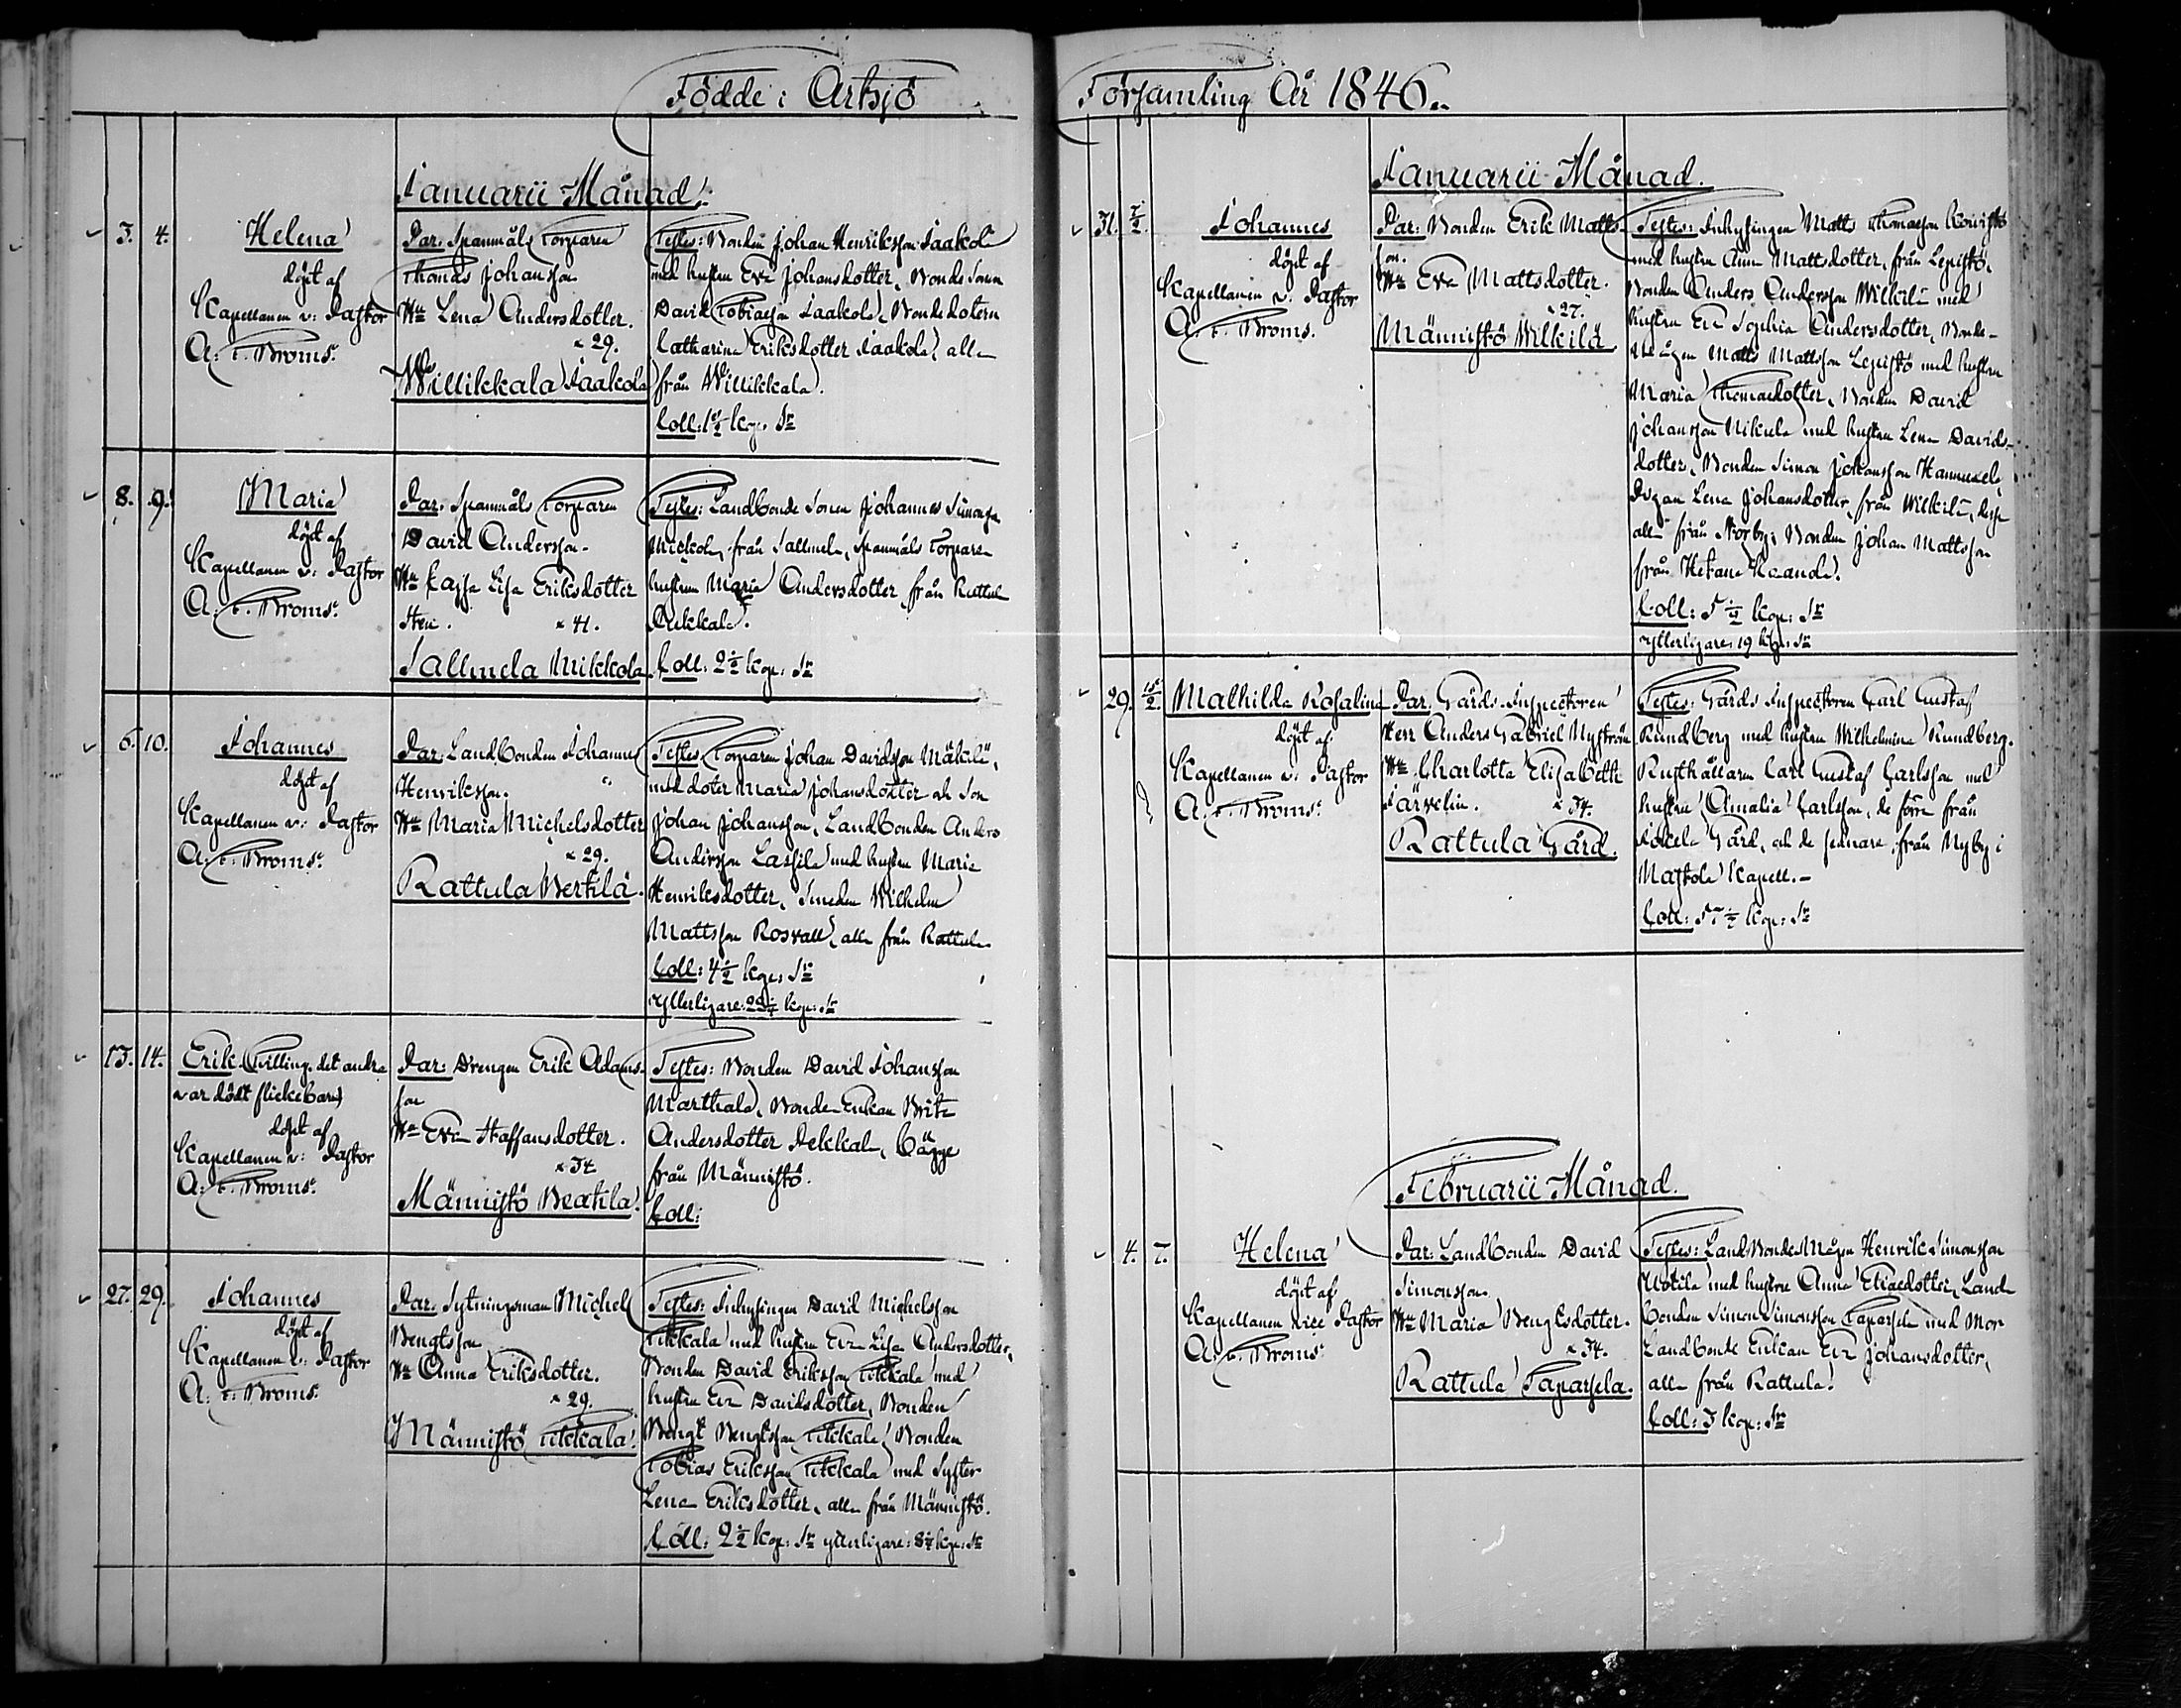 Födde i Artsjö
Januarii Månad.
3. 4.
Helena
döpt af
Kapellanen v: Pastor
A: F. Broms.
Par. Spannmåls Torparen
Thomas Johansson
Hu Lena Andersdotter.
29.
Willikkala Jaakola
Testes: Bonden Johan Henriksson Jaakola
med hustru Eva Johansdotter, Bonde Sonen
David Tobiasson Jaakola, Bonde dotern
Catharina Eriksdotter Jaakola alla
från Willikkala.
Coll: 1 1/2 kop. Sr
8. 9.
Maria
döpt af
Kapellanen v: Pastor
A: F. Broms.
Par. Spannmåls Torparen
David Andersson
Hu Kajsa Lisa Eriksdotter
Sten. 41.
Sallmela Mikkola
Testes: Landbonde Sonen Johannes Simonsson
Mickola, från Sallmela, Spannmåls Torpare
hustrun Maria Andersdotter från Rattula
Pekkala.
Coll. 2 1/2 kop: Sr
6. 10.
Johannes
döpt af
Kapellanen v: Pastor
A: F. Broms.
Par. Landbonden Johannes
Henriksson.
Hu Maria Michelsdotter
29.
Rattula Bertilä.
Testes. Torparen Johan Davidsson Mäkelä,
med doter Maria Johansdotter och Son
Johan Johansson, Landbonden Anders
Andersson Lassila med hustru Maria
Henriksdotter, Smeden Wilhelm
Mattsson Rosvall, alla från Rattula
Coll: 4 1/2 kop: Sr
Ytterligare: kop: Sr
13. 14.
Erik (Tvilling, det andra
var dödt flickebarn)
döpt af
Kapellanen v: Pastor
A: F. Broms.
Par: Drengen Erik Adams-
son
Hu Eva Staffansdotter.
34.
Männistö Beatila.
Testes: Bonden David Johansson
Marthala, Bonde Enkan Brita
Andersdotter Pekkala, bägge
från Männistö.
Coll:
27. 29.
Johannes
döpt af
Kapellanen v: Pastor
A: F. Broms.
Par. Sytningsman Michel
Bengtsson
Hu Anna Eriksdotter.
29.
Männistö Tikkala.
Testes: Inhysingen David Michelsson
Tikkala med hustru Eva Lisa Andersdotter,
Bonden David Eriksson Tikkala med
hustru Eva Davidsdotter, Bonden
Bengt Bengtsson Tikkala, Bonden
Tobias Eriksson Tikkala med Syster
Lena Eriksdotter, alla från Männistö.
Coll: 2 1/2 kop: Sr ytterligare: kop: Sr
Församling År 1846.
Januarii Månad.
31. 1/2.
Johannes
döpt af
Kapellanen v: Pastor
A: F. Broms.
Par: Bonden Erik Matts-
son.
Hu Eva Mattsdotter.
27.
Männistö Wilkilä
Testes: Inhysingen Matts Thomasson Koivisto
med hustru Anna Mattsdotter, från Lepistö,
Bonden Anders Andersson Wilkilä med
hustru Eva Sophia Andersdotter, Bonde-
Mågen Matts Mattsson Lepistö med hustru
Maria Thomasdotter, Bonden David
Johansson Nikula med hustru Lena Davids-
dotter, Bonden Simon Johansson Hannuxela,
Pigan Lena Johansdotter, från Wilkilä, desse
alla från Norby, Bonden Johan Mattsson
från
Coll: 5 1/2 kop: Sr
Ytterligare: 19 kop: Sr
29. 15/2.
Mathilda Rosalina
döpt af
Kapellanen v: Pastor
A: F. Broms.
Par. Gårds-Inspectoren
Herr Anders Gabriel Nyström
Hu Charlotta Elisabeth
Järvelin. 34.
Rattula Gård.
Testes: Gårds Inspectoren Carl Gustaf
Rundberg med hustru Wilhelmina Rundberg.
Rusthållaren Carl Gustaf Carlsson med
hustru Amalia Carlsson, de förra från
Jokela Gård, och de sednare från Nyby i
Kapell.
Coll: 57 1/2 kop: Sr
Februarii Månad.
4. 7.
Helena
döpt af
Kapellanen vice Pastor
A: F. Broms.
Par: Landbonden David
Simonsson.
Hu Maria Bengtsdotter.
34.
Rattula Taparsela.
Testes: Landbonde Mågen Henrik Simonsson
Uotila med hustru Anna Eliaedotter, Land-
bonden Simon Simonsson Taparsela med Mor
Landbonde Enkan Eva Johansdotter,
alla från Rattula.
Coll: 3 kop: Sr